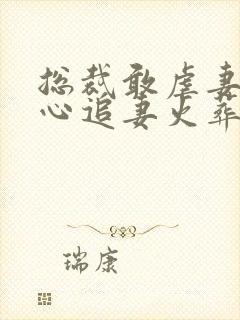 总裁敢虐妻
心追妻火葬
瑞康